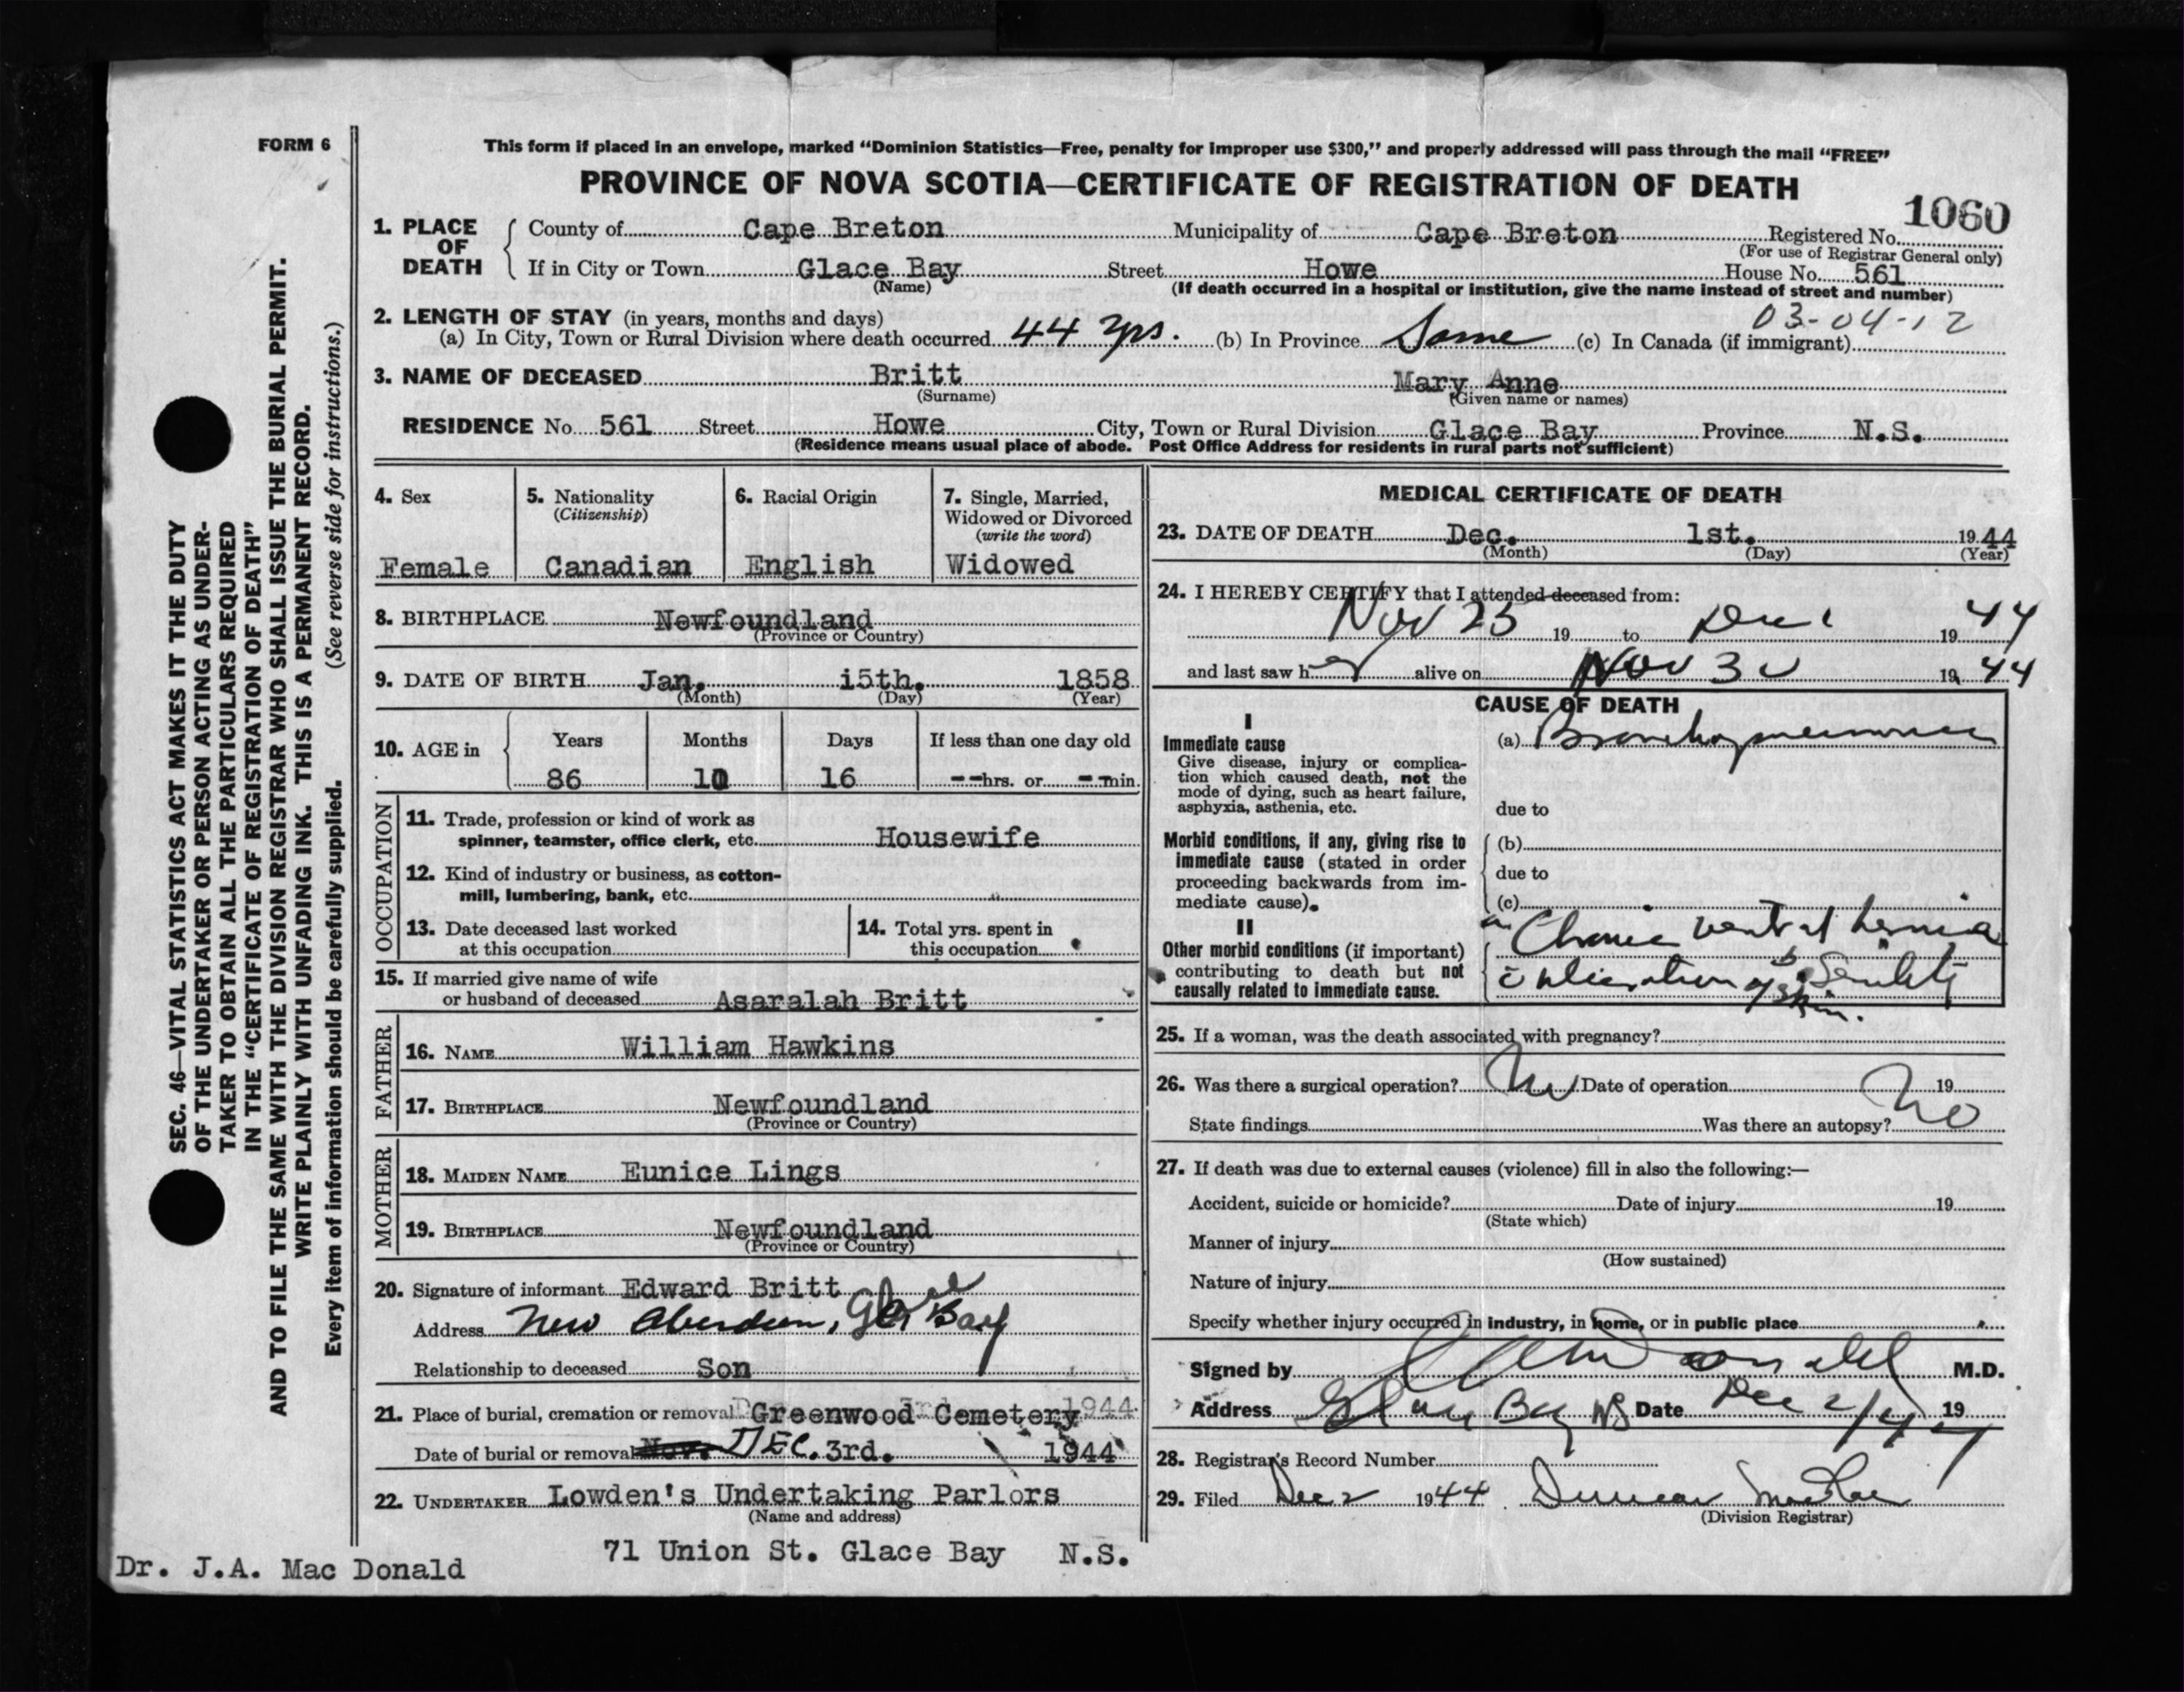 FORM 6
This form if placed in an envelope, marked “Dominion Statistics—Free, penalty for improper use $300,” and properly addressed will pass through the mail “FREE”
PROVINCE OF NOVA SCOTIA—CERTIFICATE OF REGISTRATION OF DEATH
1060
1. PLACE OF DEATH { County of Cape Breton Municipality of Cape Breton Registered No.
(For use of Registrar General only)
If in City or Town Glace Bay Street Howe House No. 561
(Name) (If death occurred in a hospital or institution, give the name instead of street and number)
2. LENGTH OF STAY (in years, months and days) 03-04-12
(a) In City, Town or Rural Division where death occurred 44 yrs. (b) In Province Same (c) In Canada (if immigrant)
3. NAME OF DECEASED Britt Mary Anne
(Surname) (Given name or names)
RESIDENCE No 561 Street Howe City, Town or Rural Division Glace Bay Province N.S.
(Residence means usual place of abode. Post Office Address for residents in rural parts not sufficient)
4. Sex
Female
5. Nationality
(Citizenship)
Canadian
6. Racial Origin
English
7. Single, Married,
Widowed or Divorced
(write the word)
Widowed
8. BIRTHPLACE Newfoundland
(Province or Country)
9. DATE OF BIRTH Jan. i5th. 1858
(Month) (Day) (Year)
10. AGE in { Years Months Days If less than one day old
86 10 16 --hrs. or --min.
OCCUPATION
11. Trade, profession or kind of work as
spinner, teamster, office clerk, etc. Housewife
12. Kind of industry or business, as cotton-
mill, lumbering, bank, etc. "
13. Date deceased last worked
at this occupation
14. Total yrs. spent in
this occupation
15. If married give name of wife
or husband of deceased Asaralah Britt
FATHER
16. NAME William Hawkins
17. BIRTHPLACE Newfoundland
(Province or Country)
MOTHER
18. MAIDEN NAME Eunice Lings
19. BIRTHPLACE Newfoundland
(Province or Country)
20. Signature of informant Edward Britt
Address New Aberdeen, Glace Bay
Relationship to deceased Son
21. Place of burial, cremation or removal Greenwood Cemetery 1944
Date of burial or removal Nov. DEC. 3rd. 1944
22. UNDERTAKER Lowden's Undertaking Parlors
(Name and address)
71 Union St. Glace Bay N.S.
Dr. J.A. Mac Donald
MEDICAL CERTIFICATE OF DEATH
23. DATE OF DEATH Dec. 1st. 1944
(Month) (Day) (Year)
24. I HEREBY CERTIFY that I attended deceased from:
Nov 25 19 to Dec 1 1944
and last saw her alive on Nov 30 1944
CAUSE OF DEATH
I
Immediate cause
Give disease, injury or complica-
tion which caused death, not the
mode of dying, such as heart failure,
asphyxia, asthenia, etc.
(a) Bronchopneumonia
due to
Morbid conditions, if any, giving rise to
immediate cause (stated in order
proceeding backwards from im-
mediate cause).
(b)
due to
(c)
II
Other morbid conditions (if important)
contributing to death but not
causally related to immediate cause.
a Chronic ventral hernia
c̄ ulceration of skin. b Senility
25. If a woman, was the death associated with pregnancy?
26. Was there a surgical operation? No Date of operation 19
State findings Was there an autopsy? No
27. If death was due to external causes (violence) fill in also the following:—
Accident, suicide or homicide? Date of injury 19
(State which)
Manner of injury
(How sustained)
Nature of injury
Specify whether injury occurred in industry, in home, or in public place
Signed by JA MacDonald M.D.
Address Glace Bay NS Date Dec 2/44 19
28. Registrar's Record Number
29. Filed Dec 2 1944 Duncan MacRae
(Division Registrar)
SEC. 46—VITAL STATISTICS ACT MAKES IT THE DUTY
OF THE UNDERTAKER OR PERSON ACTING AS UNDER-
TAKER TO OBTAIN ALL THE PARTICULARS REQUIRED
IN THE “CERTIFICATE OF REGISTRATION OF DEATH”
AND TO FILE THE SAME WITH THE DIVISION REGISTRAR WHO SHALL ISSUE THE BURIAL PERMIT.
WRITE PLAINLY WITH UNFADING INK. THIS IS A PERMANENT RECORD.
Every item of information should be carefully supplied. (See reverse side for instructions.)